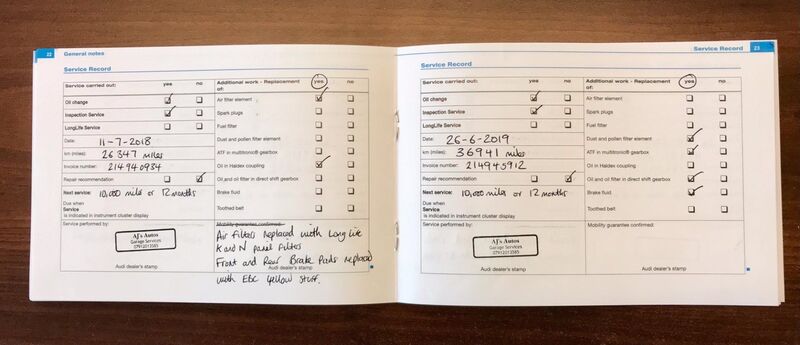 22 General notes
Service Record
Service carried out: yes no
Oil change
Inspection Service
LongLife Service
Date: 11-7-2018
km (miles): 26347 miles
Invoice number: 214940934
Repair recommendation
Next service: 10,000 miles or 12 months
Due when
Service
is indicated in instrument cluster display
Service performed by:
AJ's Autos
Garage Services
07912013585
Audi dealer's stamp
Additional work - Replacement of: yes no
Air filter element
Spark plugs
Fuel filter
Dust and pollen filter element
ATF in multitronic® gearbox
Oil in Haldex coupling
Oil and oil filter in direct shift gearbox
Brake fluid
Toothed belt
Mobility guarantee confirmed:
Air filters replaced with Long Life
K and N panel filters
Front and Rear Brake Pads replaced
Audi dealer's stamp
with Ebc yellow stuff.
Service Record 23
Service Record
Service carried out: yes no
Oil change
Inspection Service
LongLife Service
Date: 26-6-2019
km (miles): 36941 miles
Invoice number: 214945912
Repair recommendation
Next service: 10,000 miles or 12 months
Due when
Service
is indicated in instrument cluster display
Service performed by:
AJ's Autos
Garage Services
07912013585
Audi dealer's stamp
Additional work - Replacement of: yes no
Air filter element
Spark plugs
Fuel filter
Dust and pollen filter element
ATF in multitronic® gearbox
Oil in Haldex coupling
Oil and oil filter in direct shift gearbox
Brake fluid
Toothed belt
Mobility guarantee confirmed:
Audi dealer's stamp